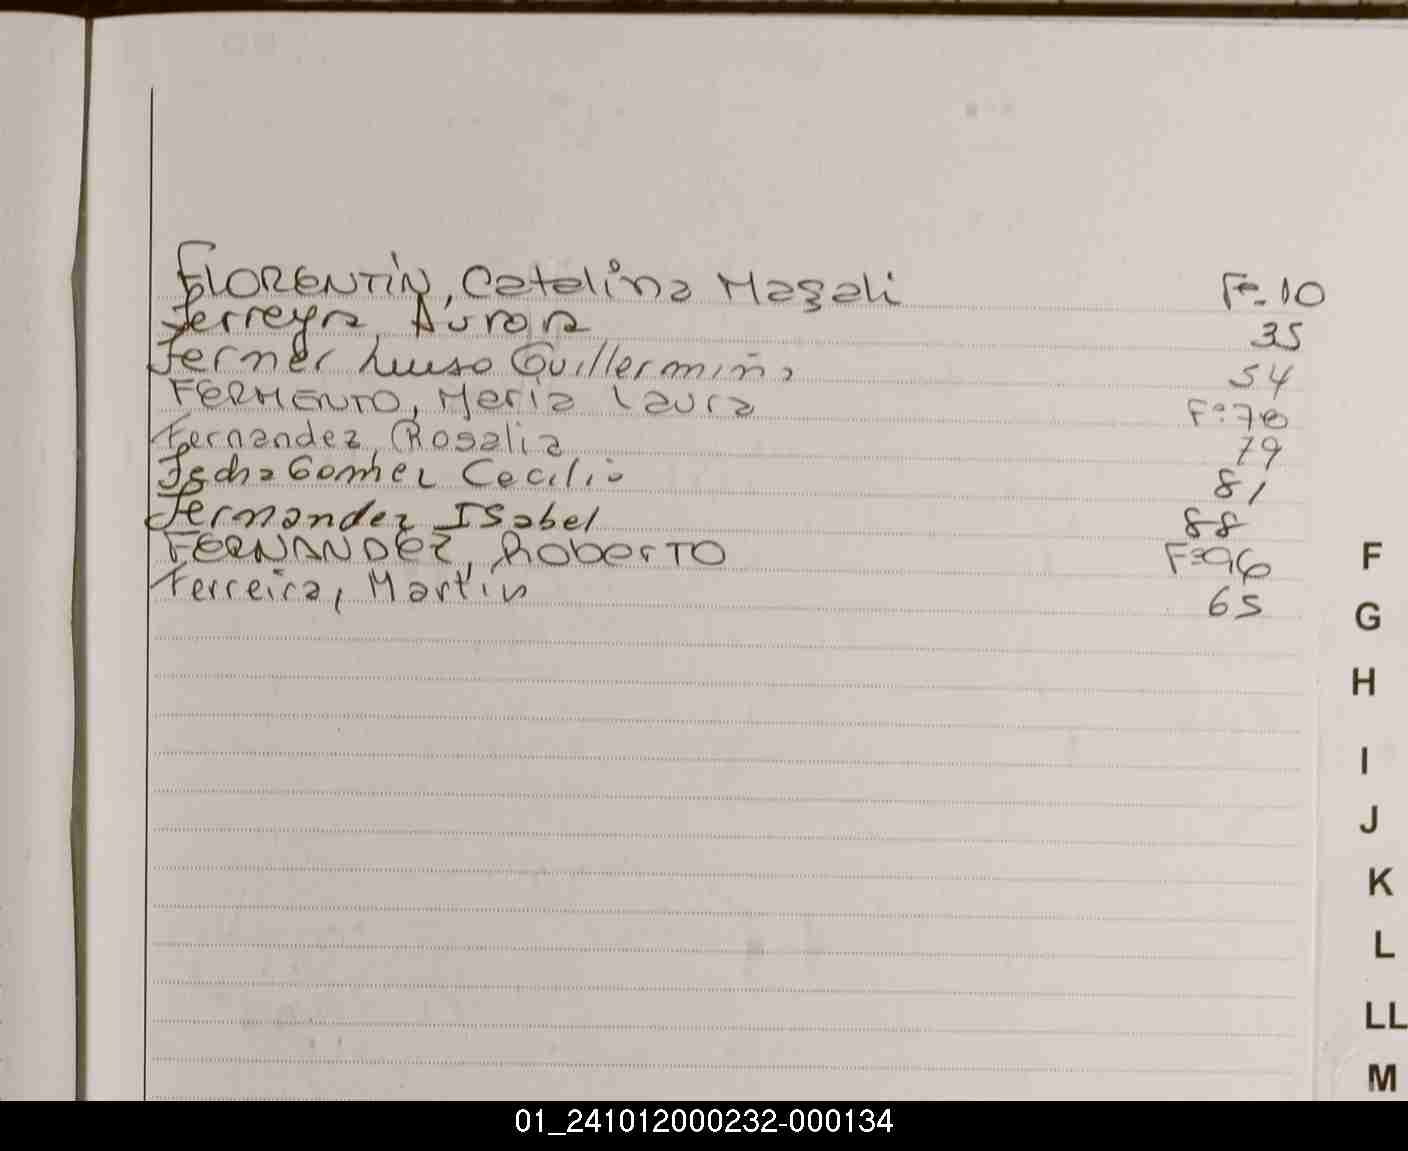 FLORENTÍN, Catalina Magali Fº. 10
Ferreyra Aurora 35
Ferner Luisa Guillermina 54
FERMENTO, María Laura Fº: 78
Fernandez Rosalia 79
Cecilia 81
Fernandez ISabel 88
FERNANDEZ, Roberto Fº: 96
Ferreira, Martín 65
F
G
H
I
J
K
L
LL
M
01_241012000232-000134